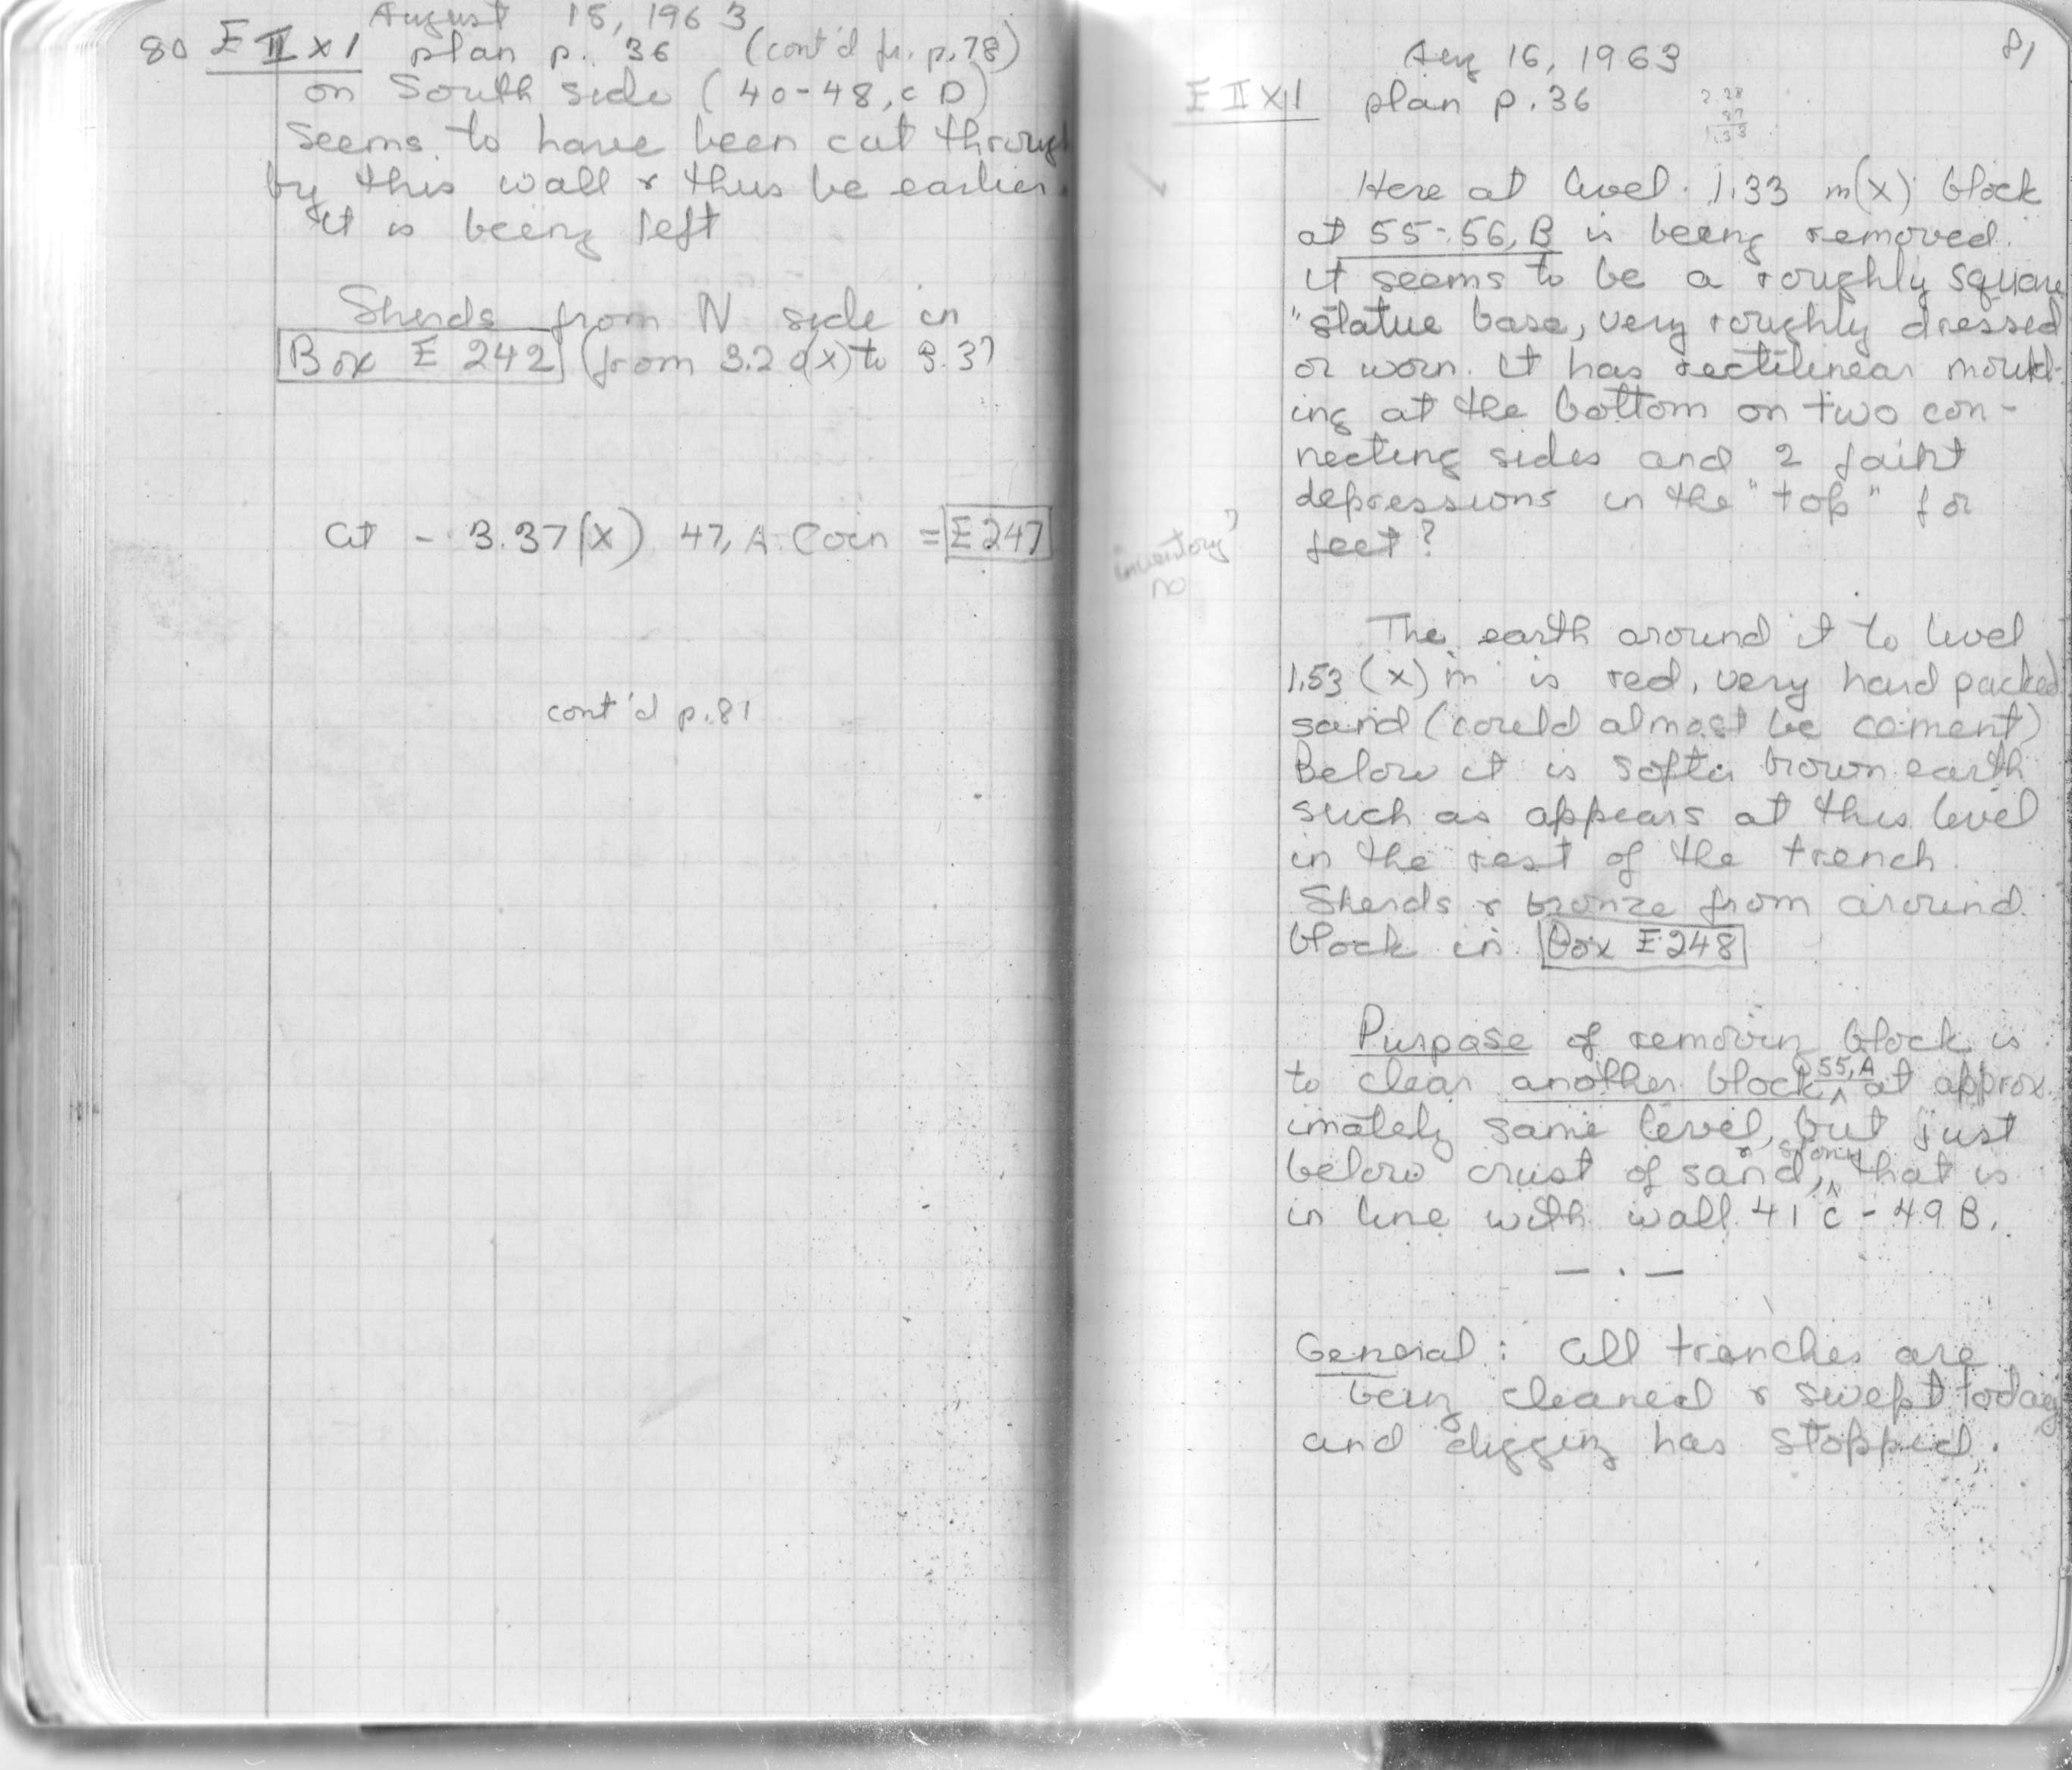 August 15, 1963
80 E II x 1 plan p. 36 (cont'd fr. p. 78)
on South side (40-48, c D)
seems to have been cut through
by this wall & thus be earlier.
it is being left
Sherds from N side in
Box E 242 (from 3.20(x) to 3.37
at - 3.37(x) 47, A Coin = E 247
cont'd p. 81
Aug 16, 1963 81
E II x 1 plan p. 36
1.33
Here at level 1.33 m(x) block
at 55-56, B is being removed.
it seems to be a roughly square
"statue base, very roughly dressed
or worn. It has rectilinear mould-
ing at the bottom on two con-
necting sides and 2 faint
depressions in the "top" for
feet?
inventory?
no
The earth around it to level
1.53 (x) m is red, very hard packed
sand (could almost be cement)
Below it is softer brown earth
such as appears at this level
in the rest of the trench.
Sherds & bronze from around
block in Box E 248
Purpose of removing block is
to clear another block 55, A at approx
imately same level, but just
below crust of sand, & stony that is
in line with wall 41 C - 49 B.
— . —
General: all trenches are
being cleaned & swept today
and digging has stopped.